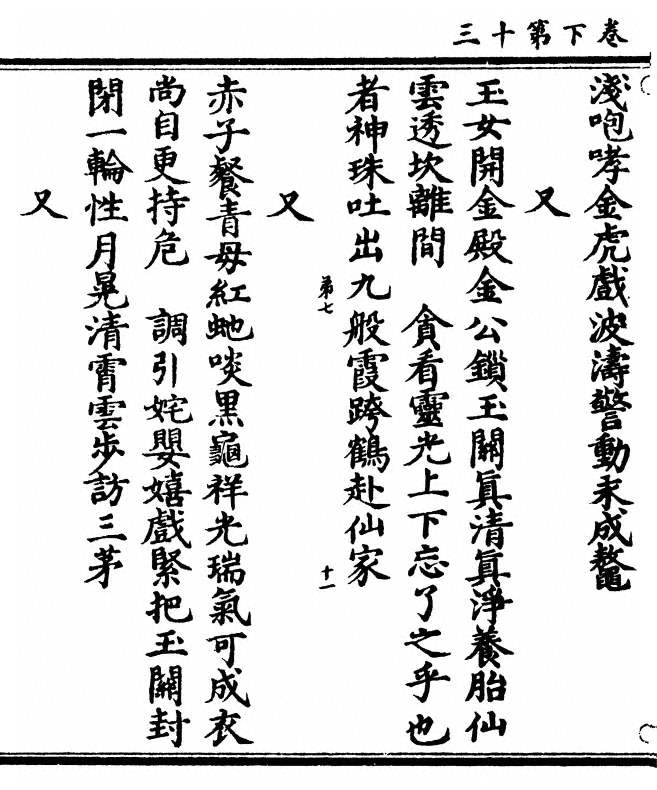 三十第下卷
淺咆哮金虎戲波濤警動汞成鼇
又
玉女開金殿金公鎖玉關眞清眞淨養胎仙
雲透坎離間　貪看靈光上下忘了之乎也
者神珠吐出九般霞跨鶴赴仙家
第七
十一
又
赤子餐青母紅虵啖黑龜祥光瑞氣可成衣
尚自更持危　調引姹嬰嬉戲緊把玉關封
閉一輪性月晃清霄雲步訪三茅
又